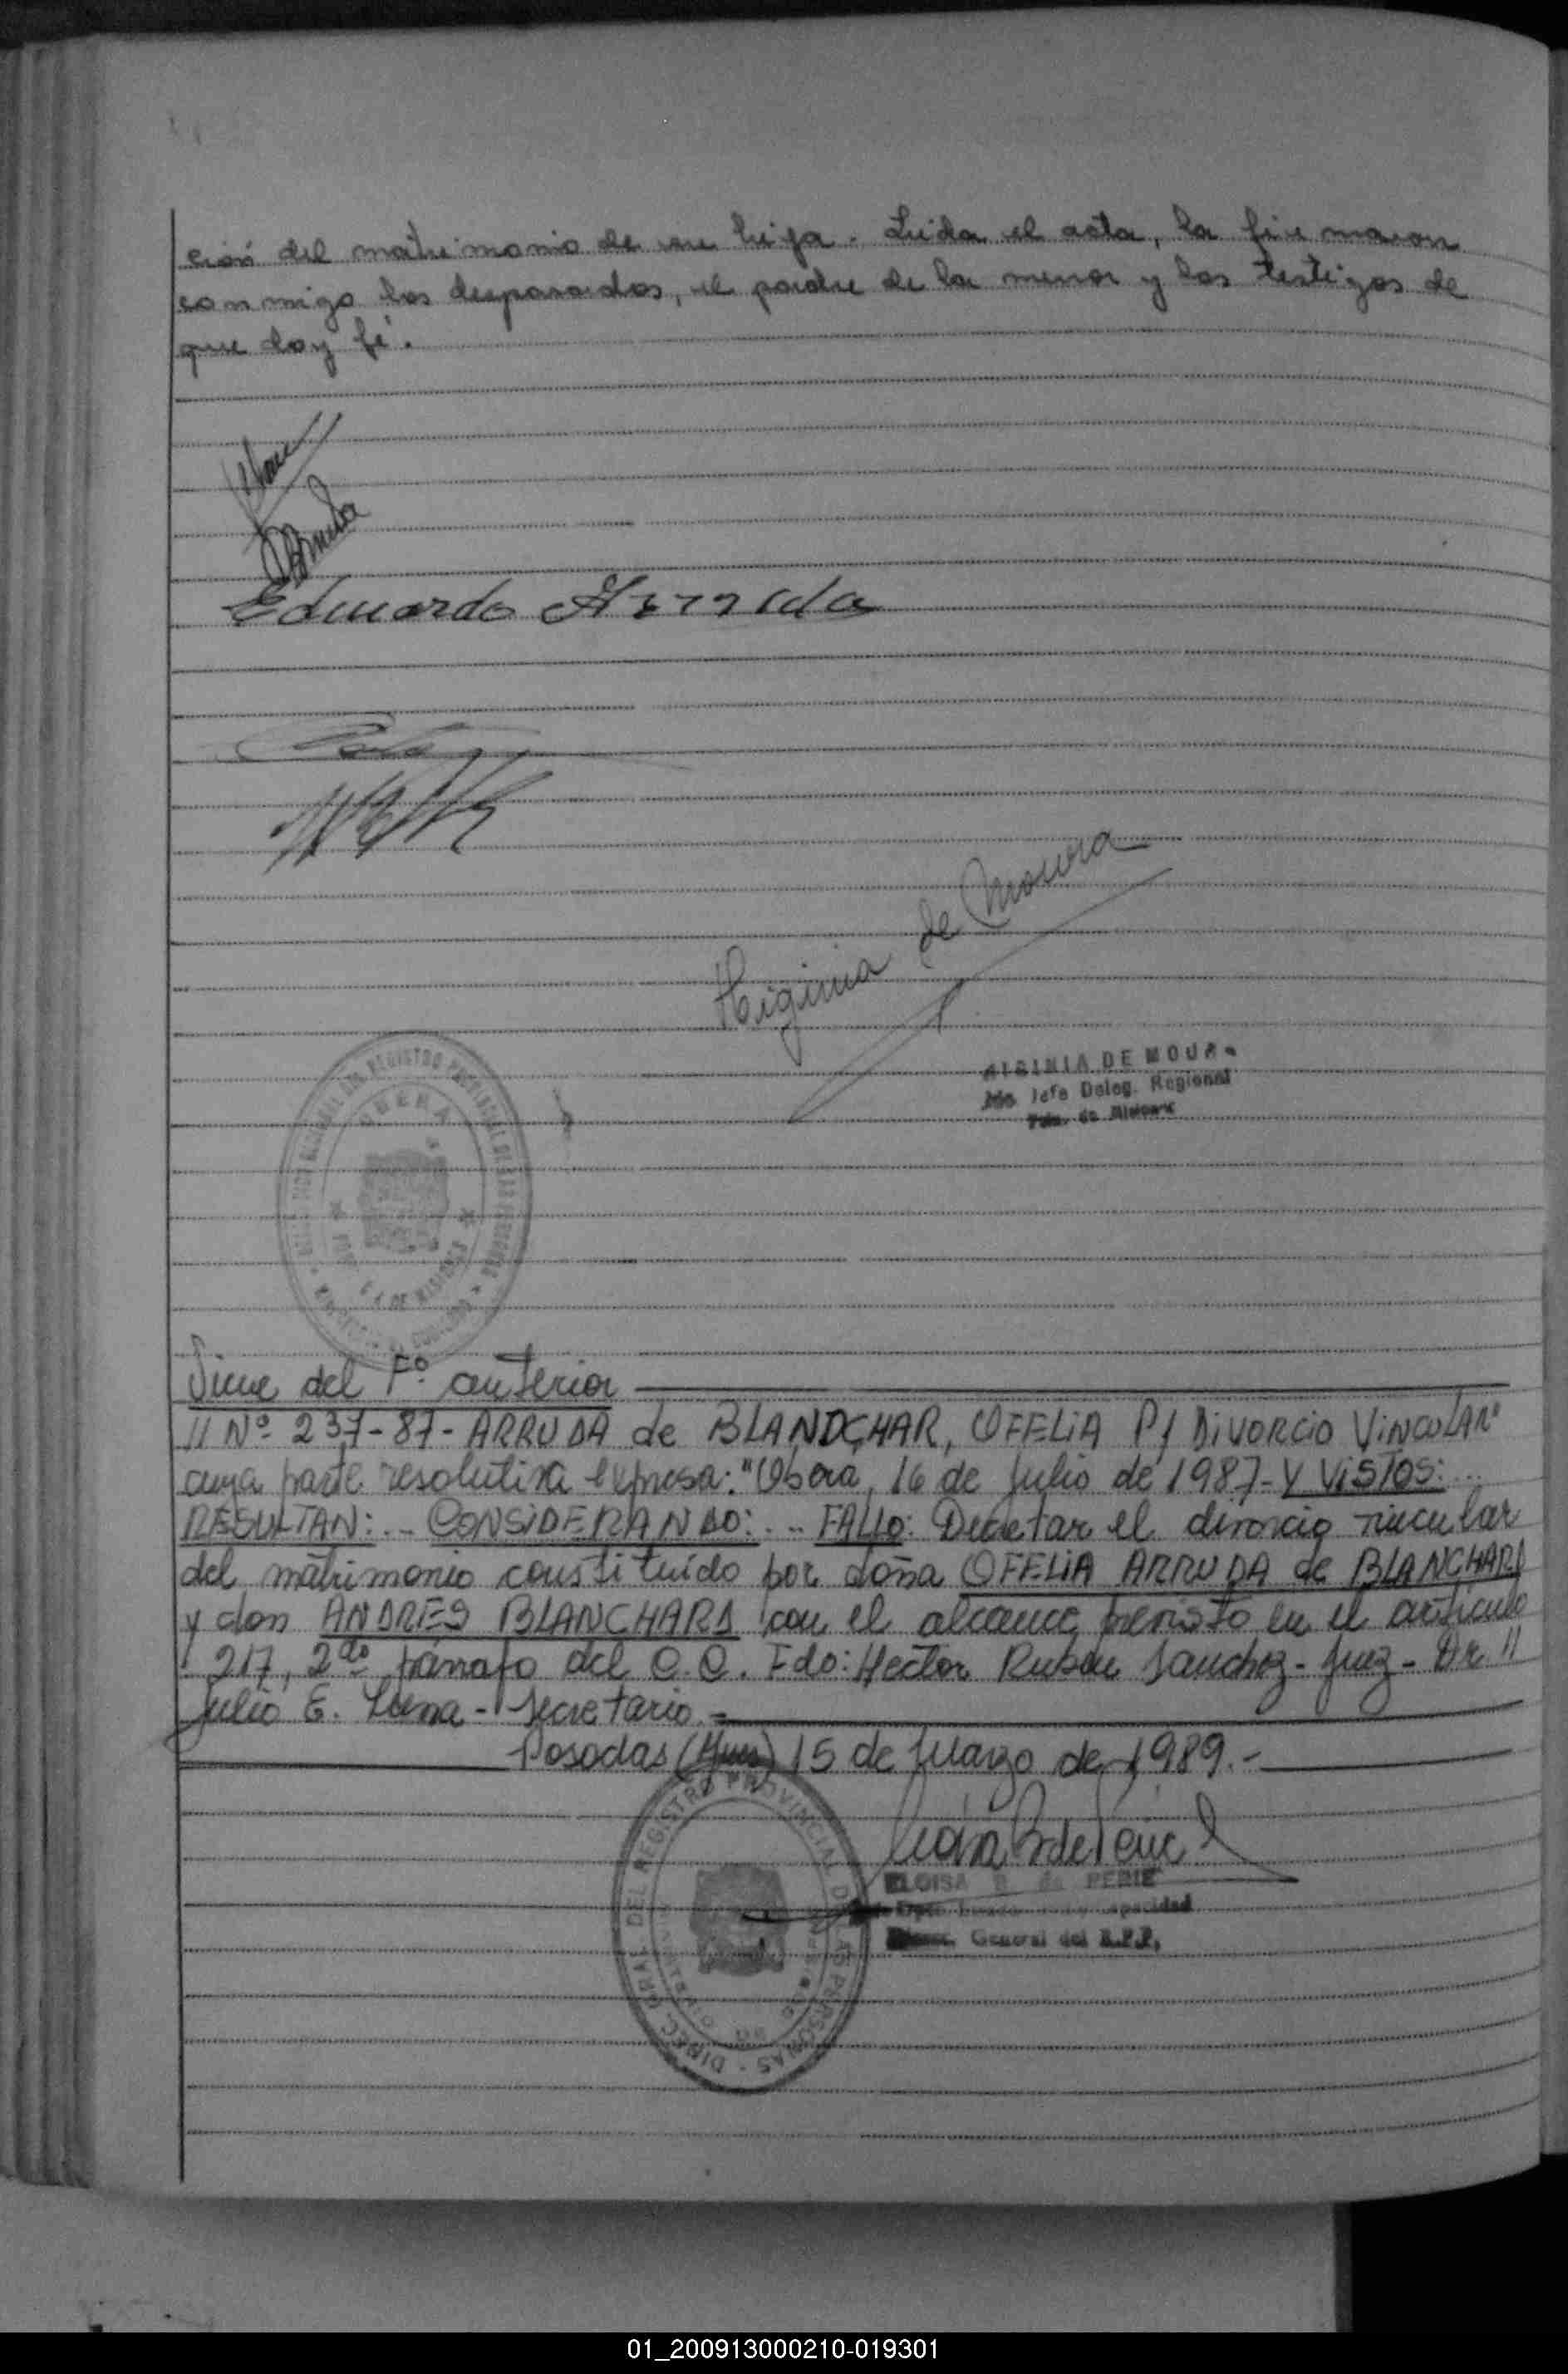 ción del matrimonio de su hija. Leida el acta, la firmaron
conmigo los desposados, el padre de la menor y los testigos de
que doy fé.
Eduardo Arruda
Higinia de Moura
HIGINIA DE MOURA
Jefe Deleg. Regional
OBERA
Viene del Fº anterior
// Nº 237-87- ARRUDA de BLANDCHAR, OFELIA P/ DIVORCIO VINCULAR"
cuya parte resolutiva expresa: "Oberá, 16 de Julio de 1987- Y VISTOS:...
RESULTAN:... CONSIDERANDO:... FALLO: Decretar el divorcio vincular
del matrimonio constituído por doña OFELIA ARRUDA de BLANCHARD
y don ANDRES BLANCHARD con el alcance previsto en el artículo
217, 2do párrafo del C.C. Fdo: Hector Ruben Sanchez- Juez- Dr. //
Julio E. - Secretario.-
Posadas (Mnes) 15 de Marzo de 1989.-
DIREC. GRAL. DEL REGISTRO PROVINCIAL DE LAS PERSONAS
ELOISA B. de PERIE
Dpto. y Capacidad
General del R.P.P.
01_200913000210-019301